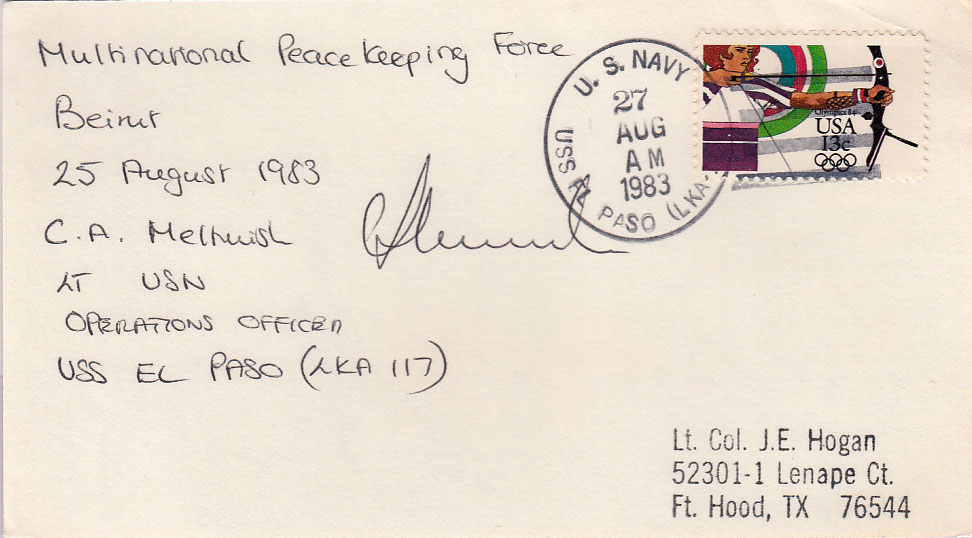 Multinational Peace Keeping Force
Beirut
25 August 1983
C.A.
LT USN
OPERATIONS OFFICER
USS EL PASO (LKA 117)
U. S. NAVY
27
AUG
AM
1983
USS EL PASO (LKA-
Olympics 84
USA
13c
Lt. Col. J.E. Hogan
52301-1 Lenape Ct.
Ft. Hood, TX 76544